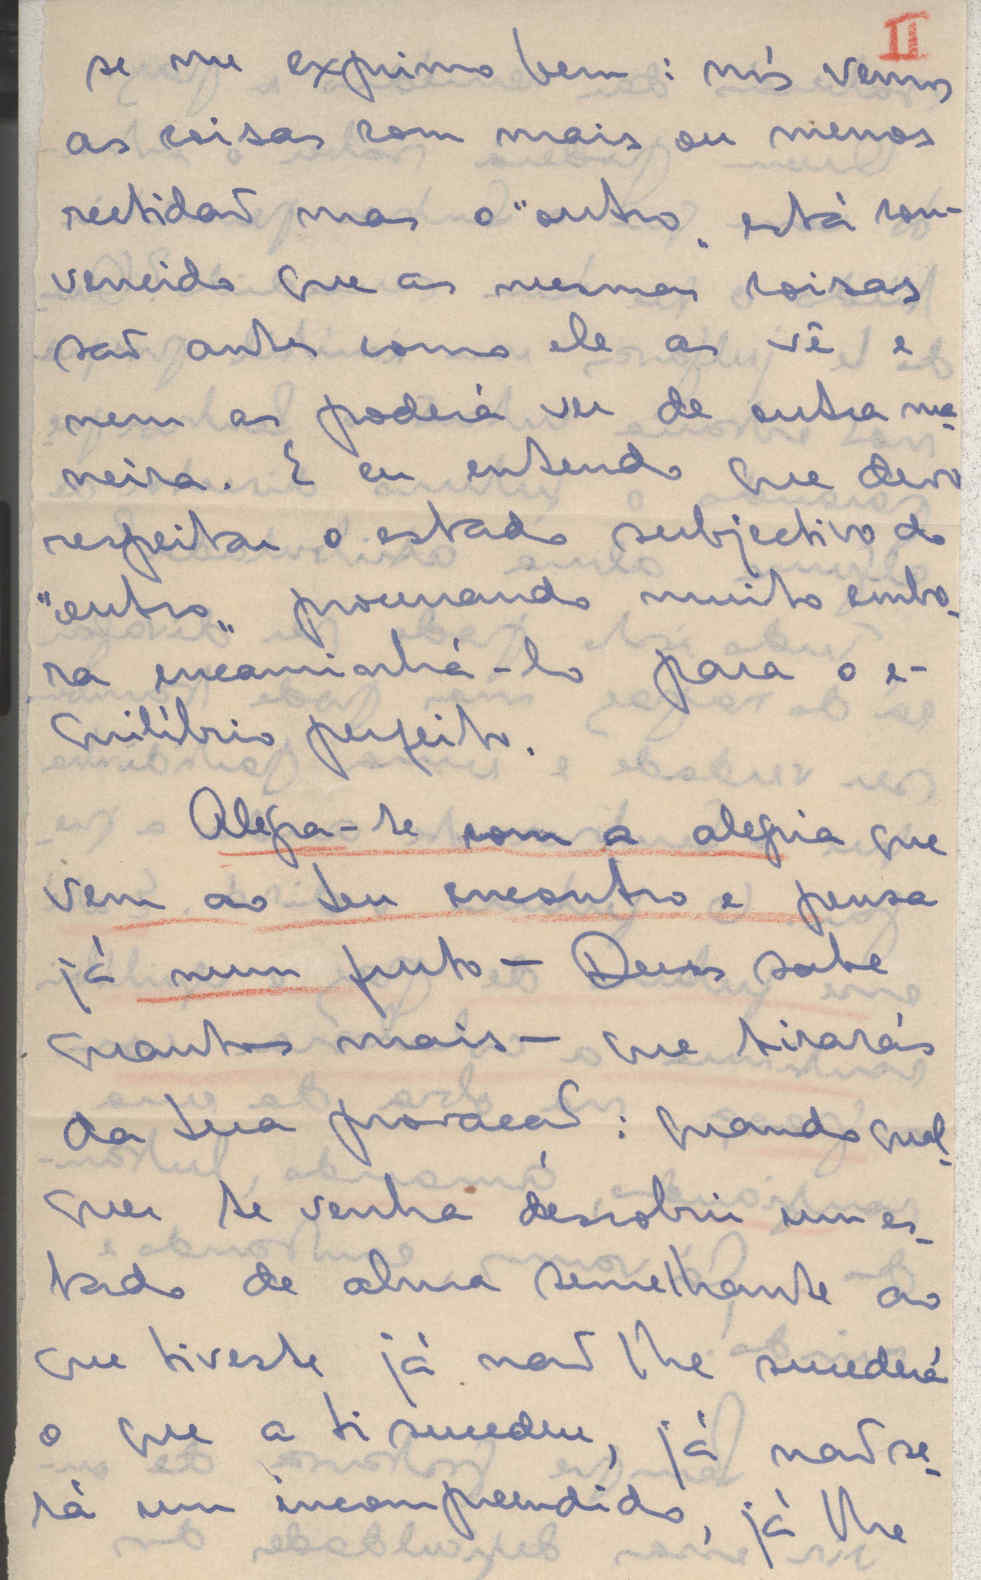 II
se me exprimo bem: nós vemos
as coisas com mais ou menos
rectidão mas o "outro" está con-
vencido que as mesmas coisas
são antes como ele as vê e
nem as poderá ver de outra ma-
neira. E eu entendo que devo
respeitar o estado subjectivo do
"outro" procurando muito embo-
ra encaminhá-lo para o e-
quilíbrio perfeito.
Alegra-te com a alegria que
vem ao teu encontro e pensa
já num fruto — Deus sabe
quantos mais — que tirarás
da tua provação: quando qual-
quer te venha descobrir um es-
tado de alma semelhante ao
que tiveste já não lhe sucederá
o que a ti sucedeu, já não se-
rá um incompreendido, já lhe